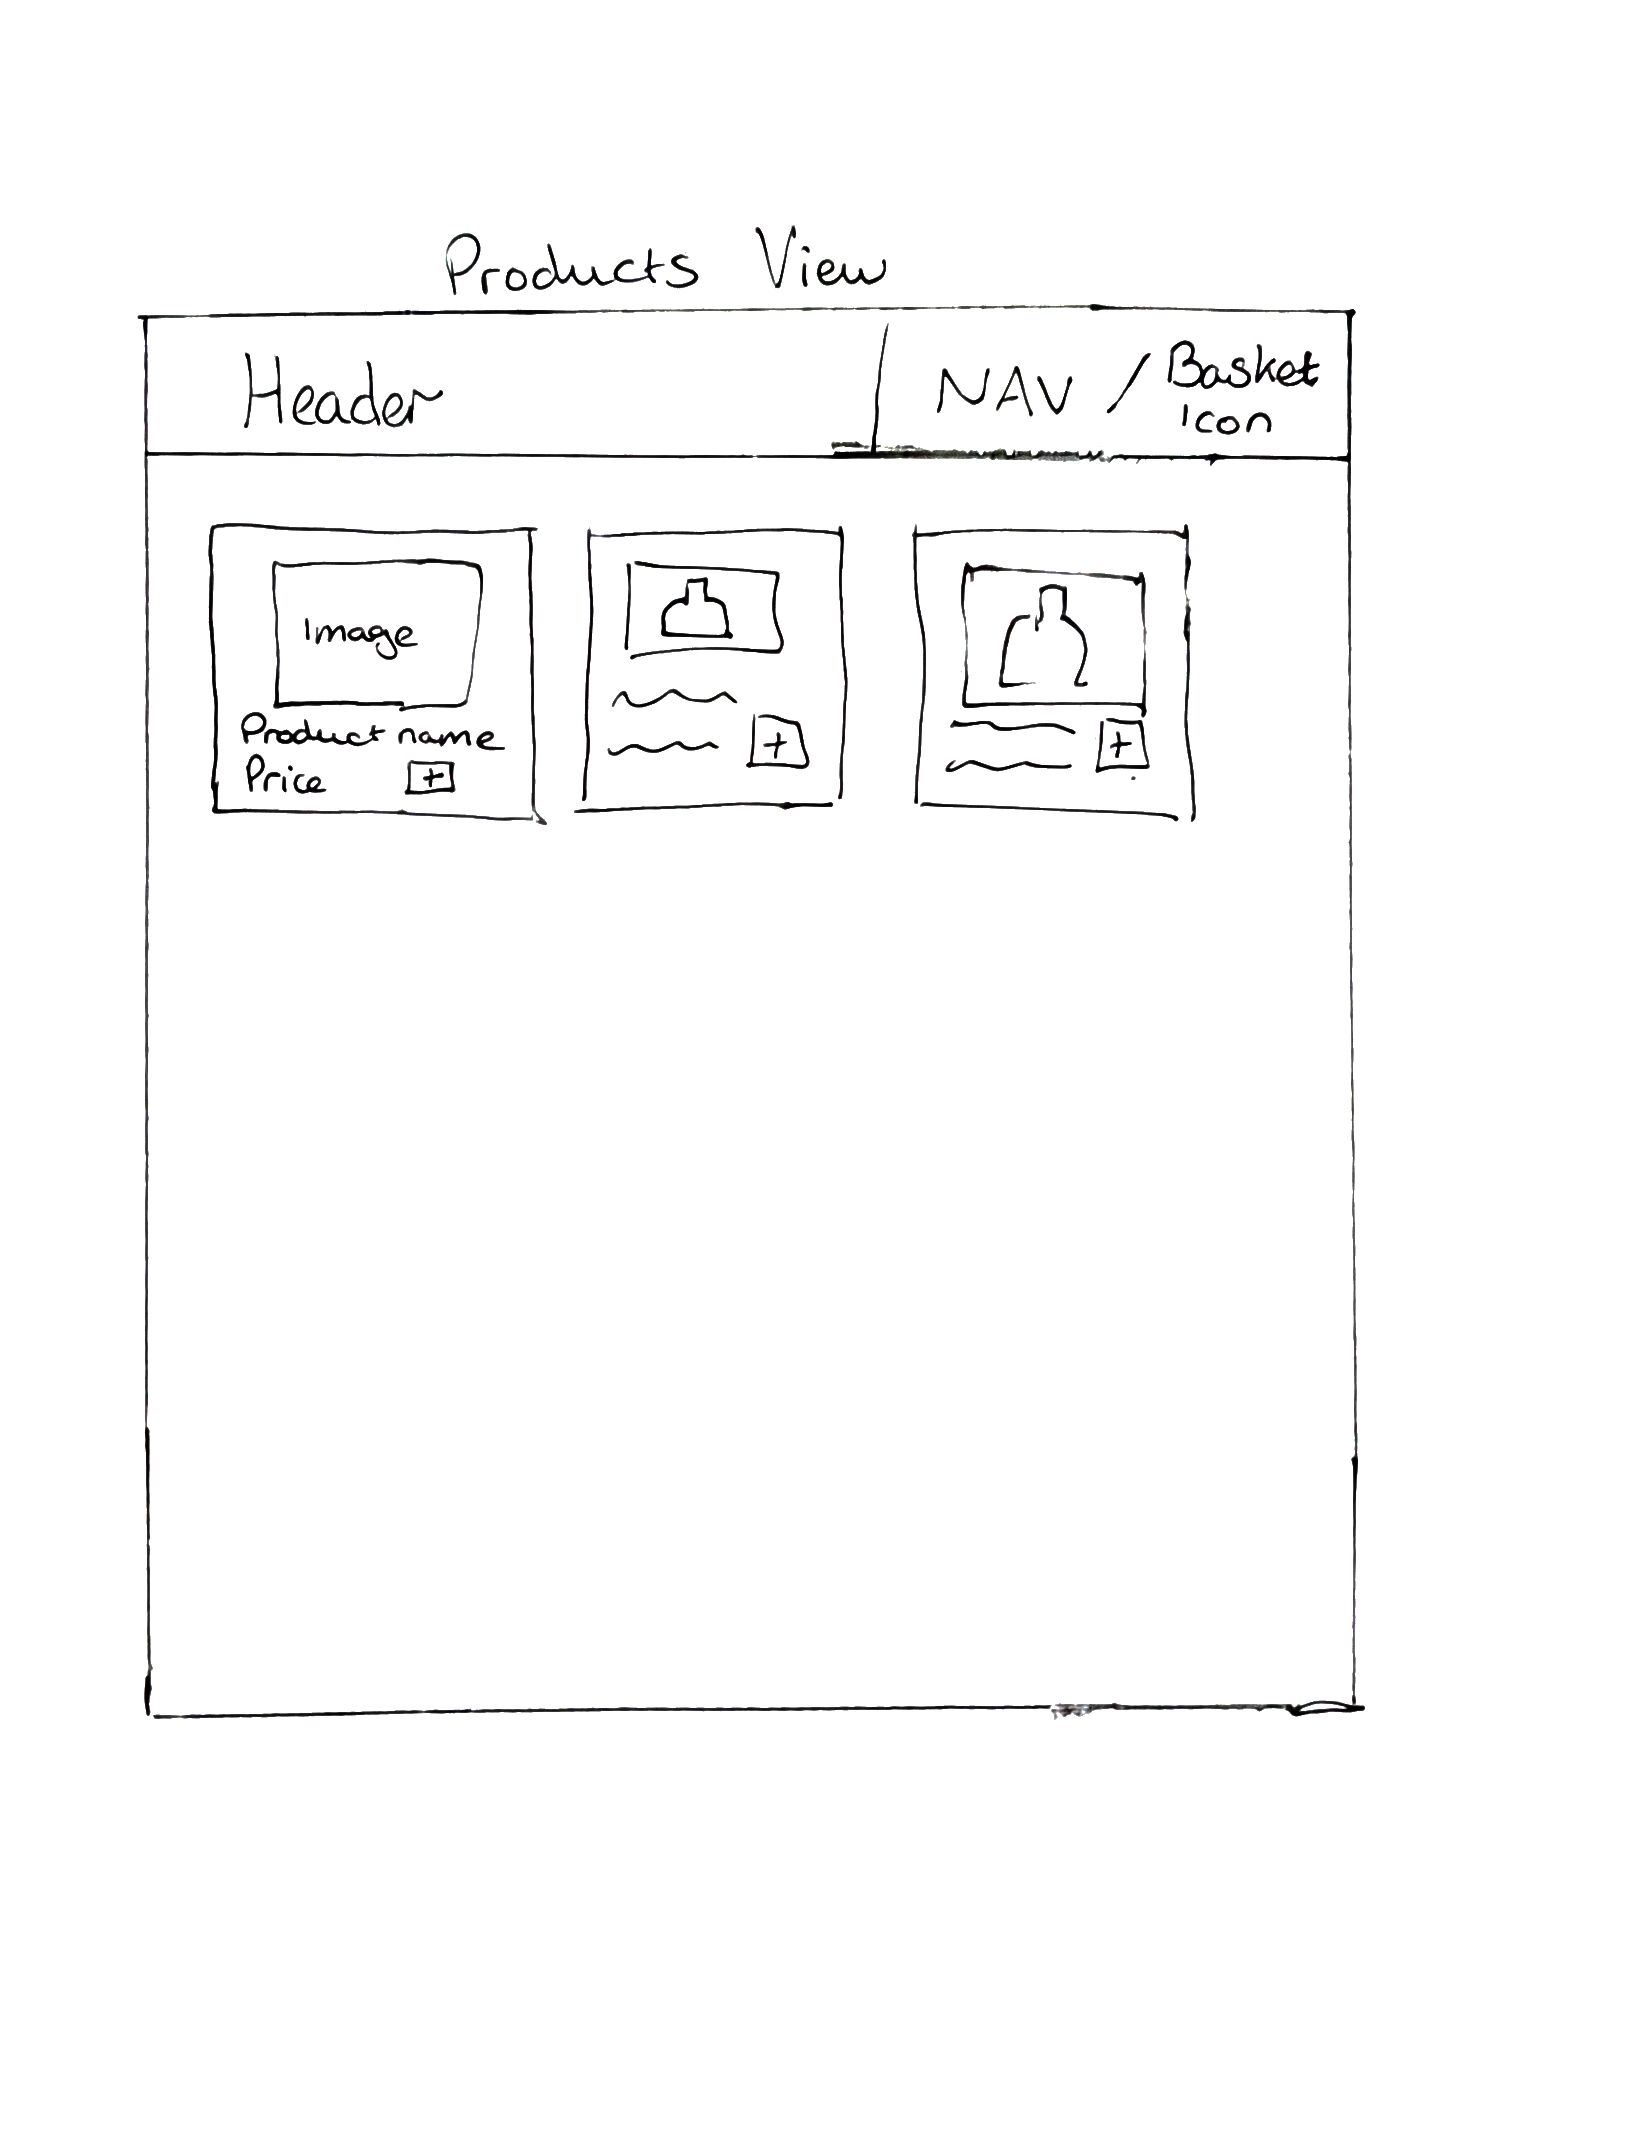 Products View
Header
NAV / Basket
Icon
Image
Product name
Price +
+
+